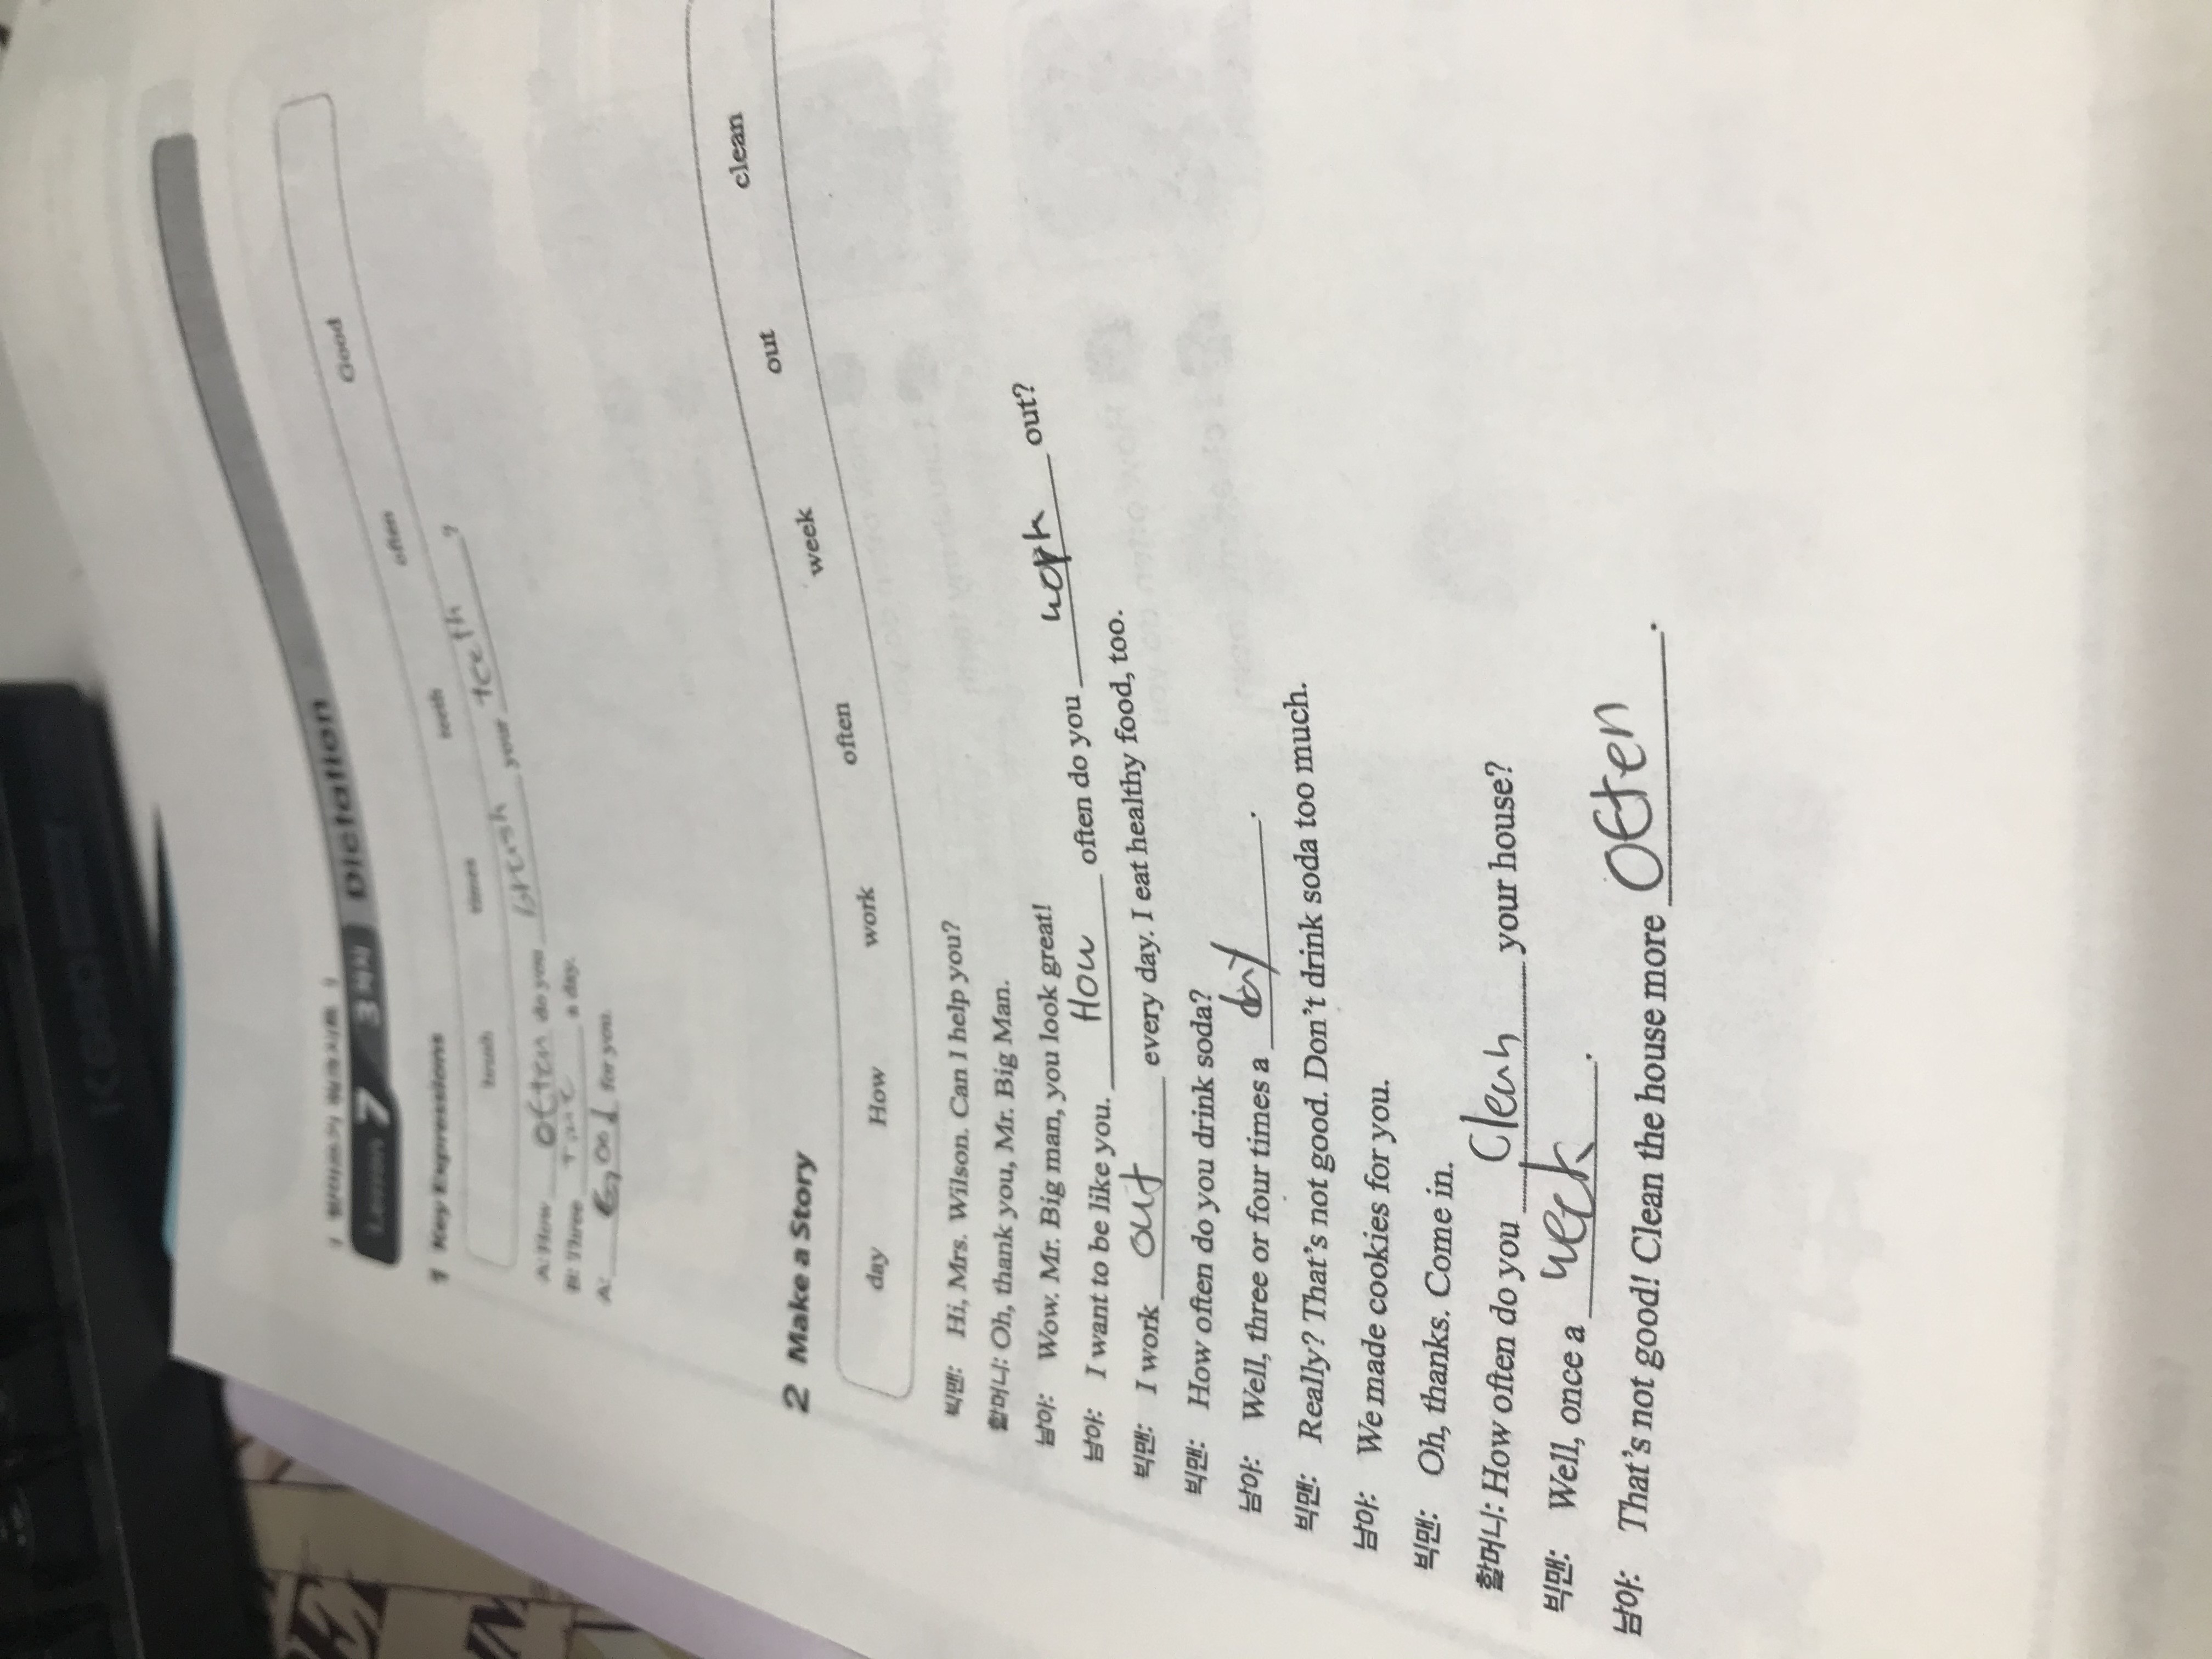 Lesson 7 3차시 Dictation
1 Key Expressions
brush times teeth often Good
A: How often do you brush your teeth ?
B: Three time a day.
A: Good for you.
2 Make a Story
day How work often week out clean
빅맨: Hi, Mrs. Wilson. Can I help you?
할머니: Oh, thank you, Mr. Big Man.
남아: Wow. Mr. Big man, you look great!
남아: I want to be like you. How often do you work out?
빅맨: I work out every day. I eat healthy food, too.
빅맨: How often do you drink soda?
남아: Well, three or four times a day.
빅맨: Really? That's not good. Don't drink soda too much.
남아: We made cookies for you.
빅맨: Oh, thanks. Come in.
할머니: How often do you clean your house?
빅맨: Well, once a week.
남아: That's not good! Clean the house more often.